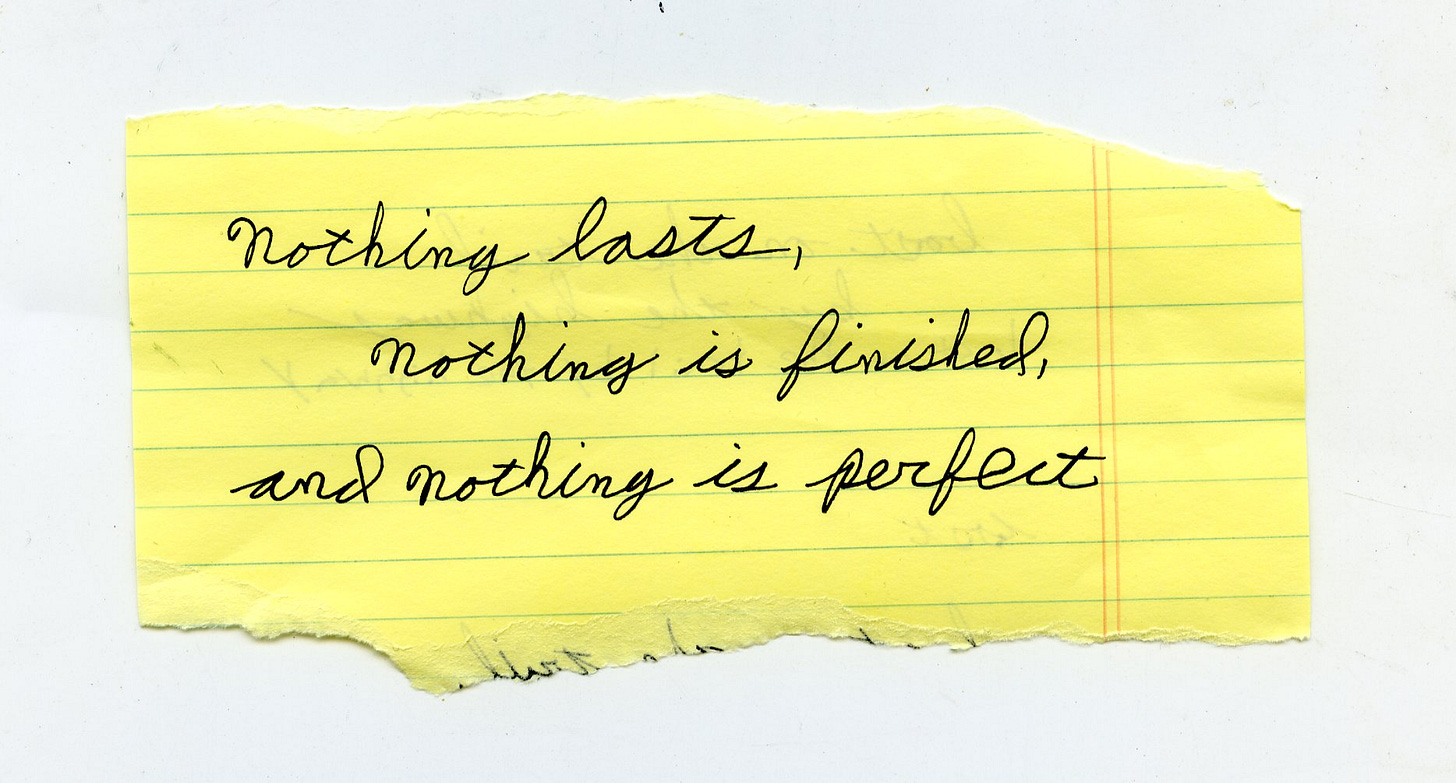 Nothing lasts,
nothing is finished,
and nothing is perfect